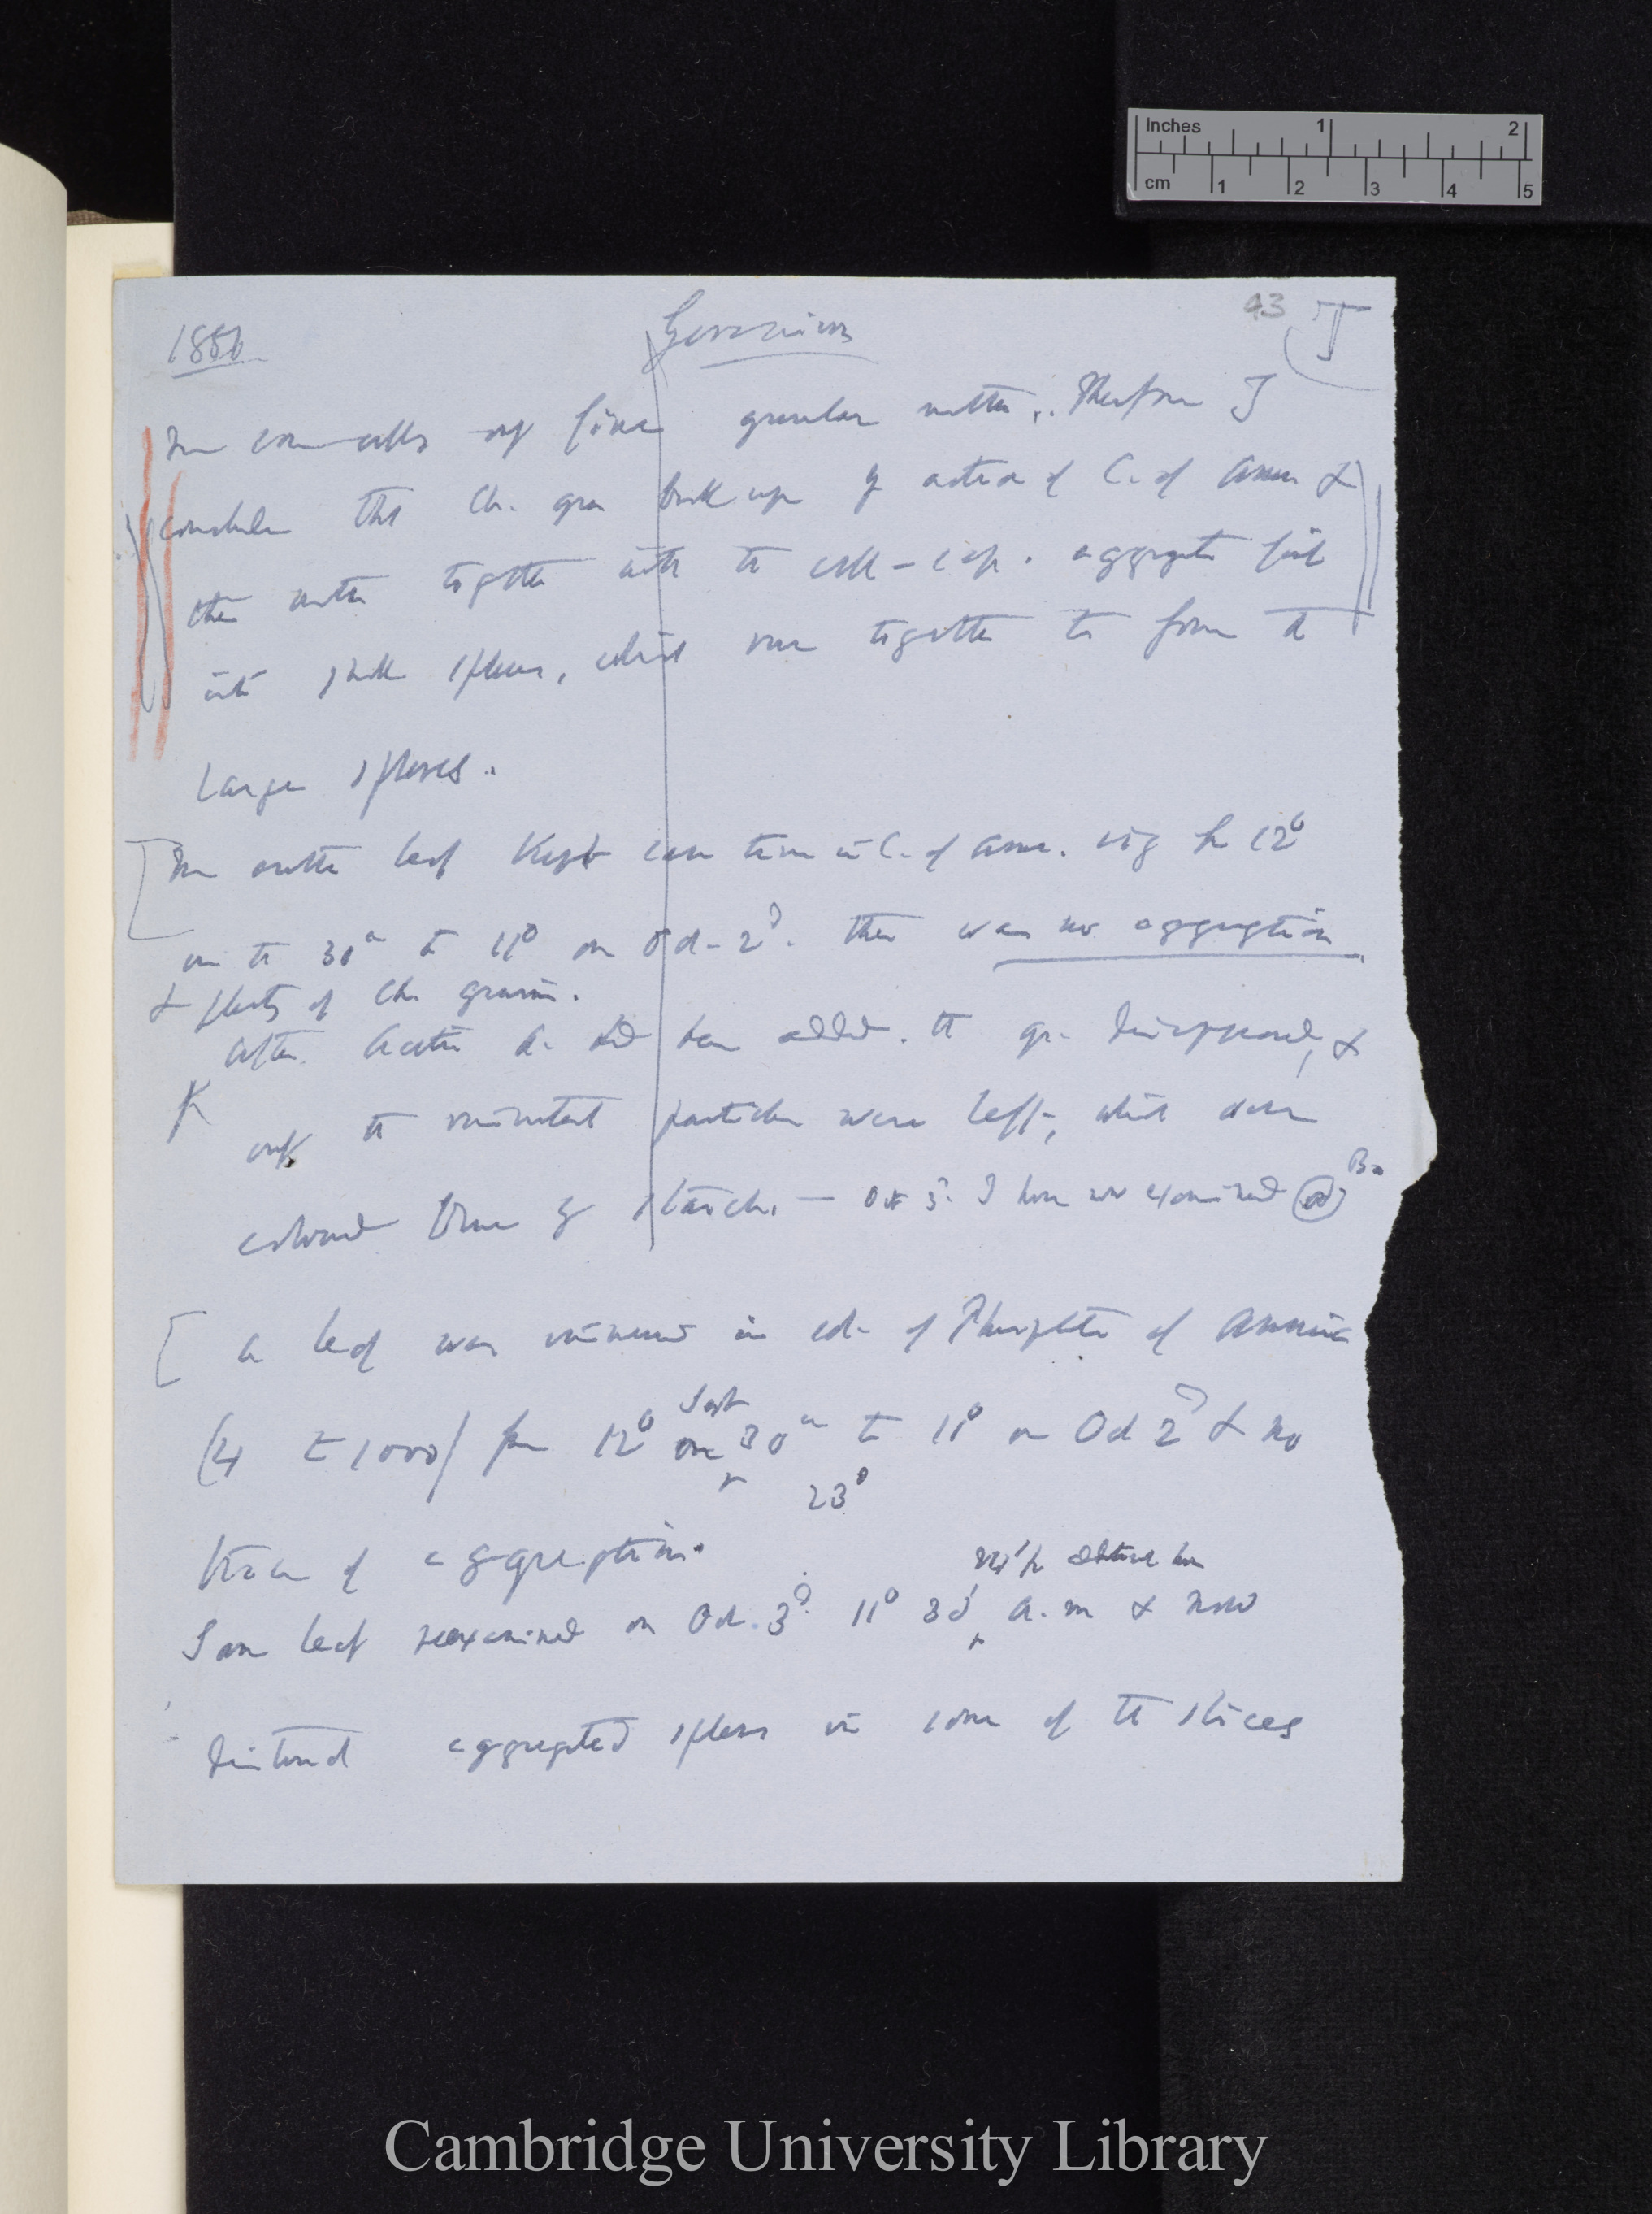 Inches 1 2
cm 1 2 3 4 5
1880 Geranium 93 J
In some cells only fine granular matter. Therefore I
conclude that Ch. gran break up by action of C. of Amm &
then unite together with the cell-sap. aggregate first
into small spheres, which run together to form the
large spheres.
In another leaf Kept same time in C. of Amm. viz for 12°
on the 30th to 11° on Oct. 2d. there was no aggregation
& plenty of Ch. grains.
After Acetic A. had been added. the gr. disappeared, &
only the minutest particles were left, which were
coloured blue by starch. — Oct 3d. I have now examined
[A leaf was immersed in sol. of Phosphate of Ammonia
Sept
(4 to 1000) for 12° on 30th to 11° on Oct 2d & no
23°
trace of aggregation.
Same leaf reexamined on Oct. 3d. 11° 30' A.m & now
distinct aggregated spheres in some of the slices
Cambridge University Library